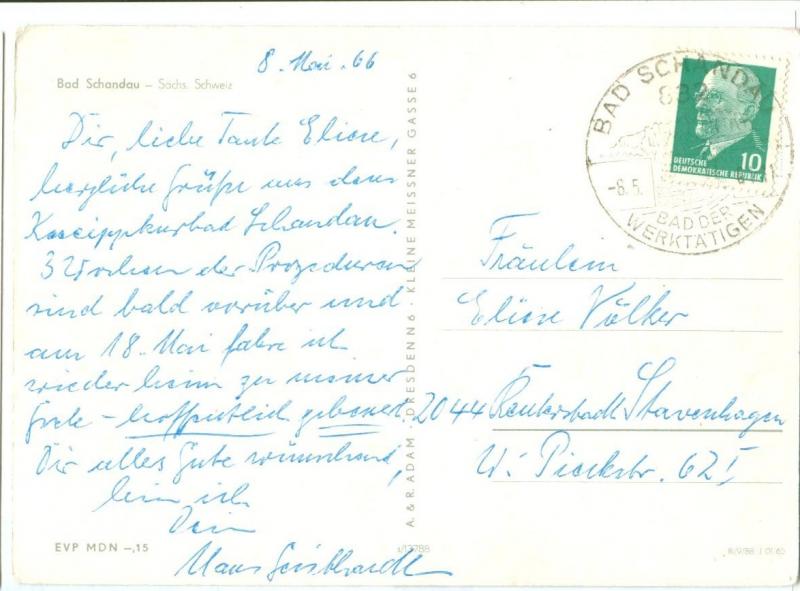 8. Mai. 66
Bad Schandau – Sächs. Schweiz
Dir, liebe Tante Eliese,
herzliche Grüße aus dem
Kneippkurbad Schandau.
3 Wochen der Prozeduren
sind bald vorüber und
am 18. Mai fahre ich
wieder heim zu meiner
– hoffentlich gebessert.
Dir alles Gute wünschend,
bin ich
Dein
Hans
EVP MDN –,15
A. & R. ADAM · DRESDEN N 6 · KLEINE MEISSNER GASSE 6
BAD SCHANDAU
-8.5.
BAD DER
WERKTÄTIGEN
10
DEUTSCHE
DEMOKRATISCHE REPUBLIK
Fräulein
Eliese Völker
2044 Reuterstadt Stavenhagen
W. Pieckstr. 62 I